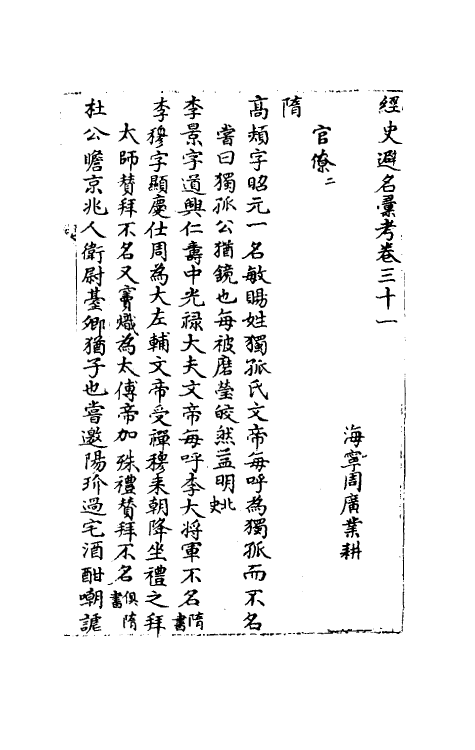 經史避名彙考卷三十一
海寧周廣業耕
官僚二
隋
高熲字昭元一名敏賜姓獨孤氏文帝每呼為獨孤而不名
嘗曰獨孤公猶鏡也每被磨瑩皎然益明北史
李景字道興仁壽中光祿大夫文帝每呼李大將軍不名隋書
李穆字顯慶仕周為大左輔文帝受禪穆來朝降坐禮之拜
太師贊拜不名又竇熾為太傅帝加殊禮贊拜不名俱隋書
杜公瞻京兆人衛尉臺卿猶子也嘗邀陽玠過宅酒酣嘲謔